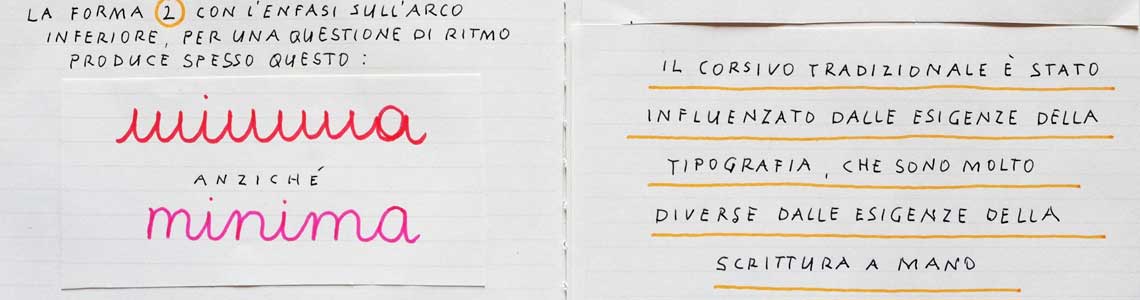 LA FORMA 2 CON L'ENFASI SULL'ARCO
INFERIORE, PER UNA QUESTIONE DI RITMO
PRODUCE SPESSO QUESTO:
minima
ANZICHÉ
minima
IL CORSIVO TRADIZIONALE È STATO
INFLUENZATO DALLE ESIGENZE DELLA
TIPOGRAFIA, CHE SONO MOLTO
DIVERSE DALLE ESIGENZE DELLA
SCRITTURA A MANO